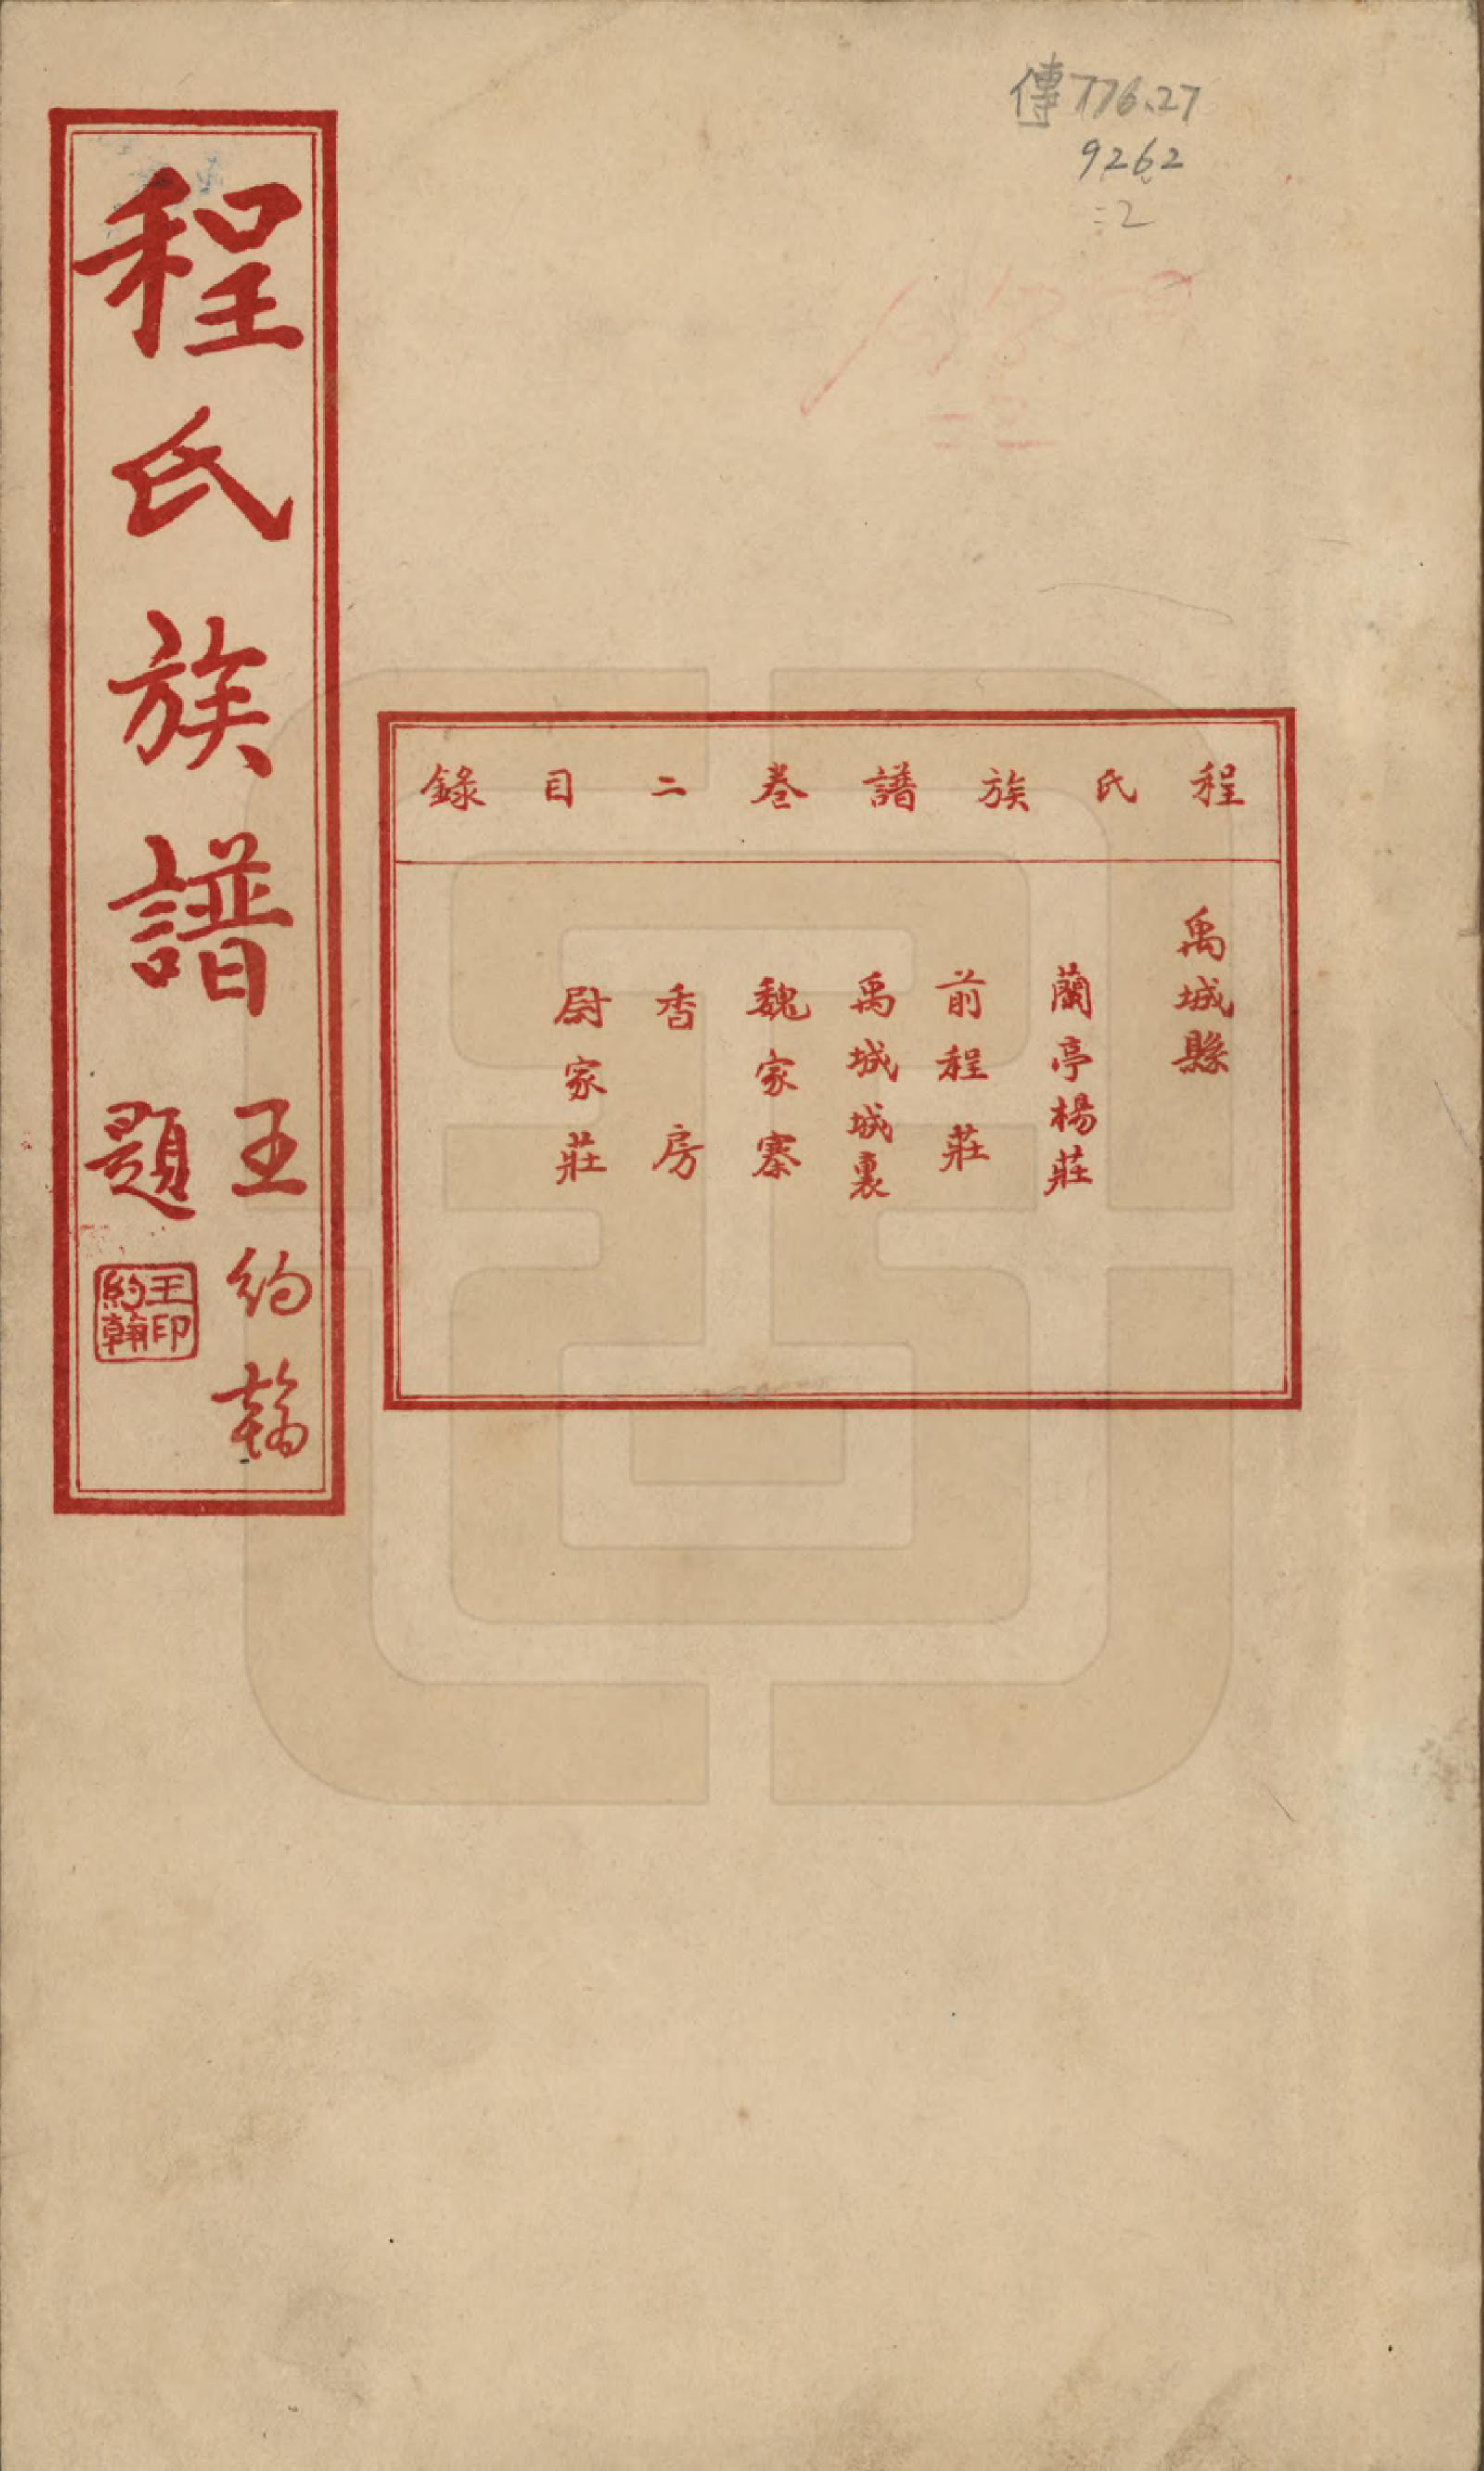 傳776.27
9262
:2
程氏族譜卷二目錄
禹城縣
蘭亭楊莊
前程莊
禹城城裏
魏家寨
香房
尉家莊
程氏族譜
王約翰
題
王印
約翰